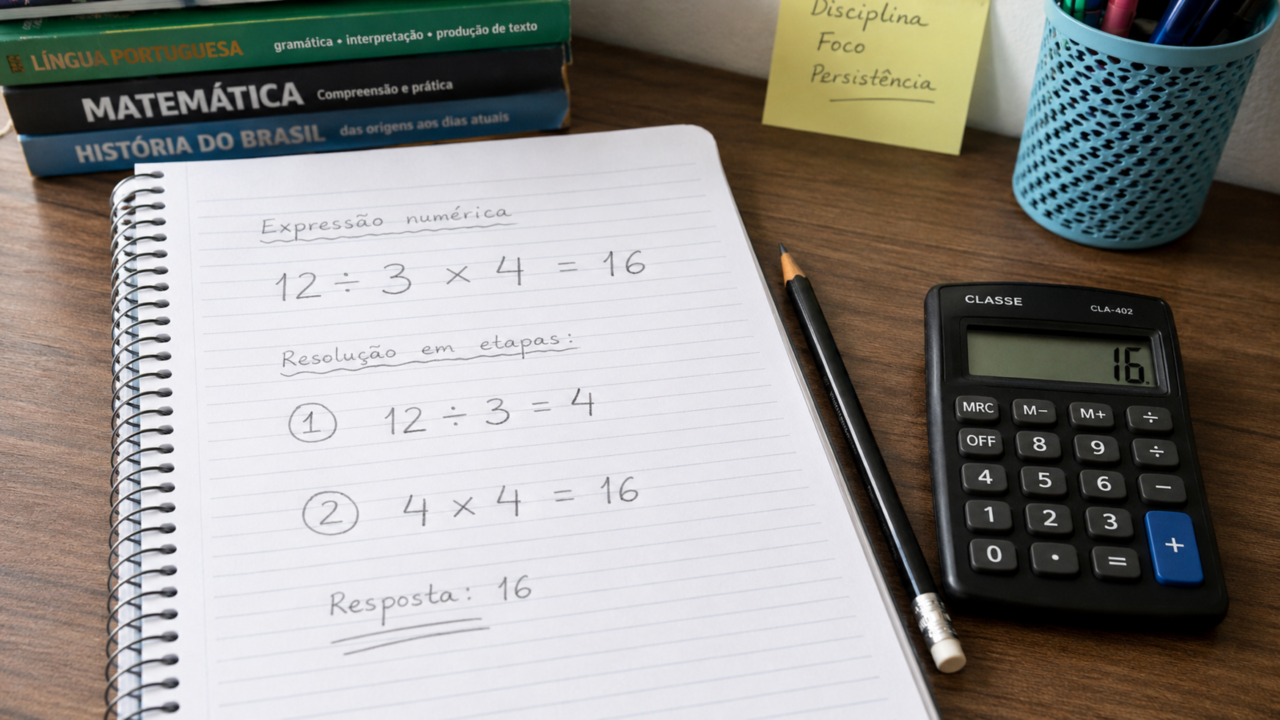 LÍNGUA PORTUGUESA gramática • interpretação • produção de texto
MATEMÁTICA Compreensão e prática
HISTÓRIA DO BRASIL das origens aos dias atuais
Disciplina
Foco
Persistência
Expressão numérica
12 ÷ 3 × 4 = 16
Resolução em etapas:
1 12 ÷ 3 = 4
2 4 × 4 = 16
Resposta: 16
CLASSE CLA-402
16.
MRC M− M+ ÷
OFF 8 9 ÷
4 5 6 −
1 2 3 +
0 • =